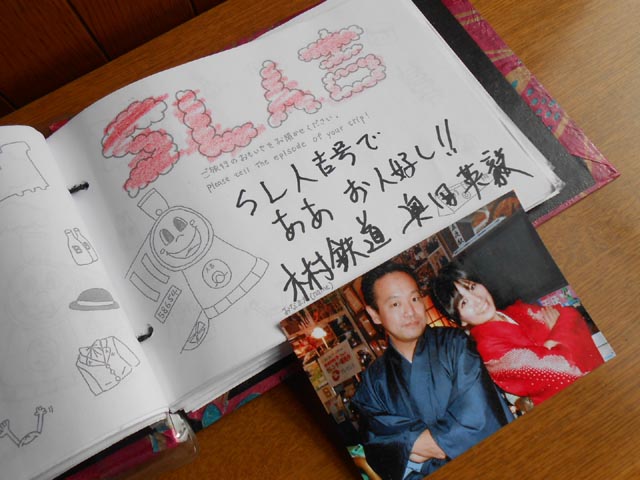 SL人吉
ご旅行のおもいでをお聞かせください。
Please tell The episode of your trip!
SL人吉号で
ああ お人好し!!
木村鉄道 奥田英毅
おなまえ(name)
58654